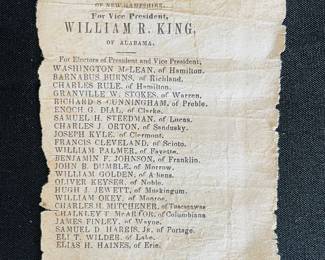 OF NEW HAMPSHIRE.
For Vice President,
WILLIAM R. KING,
OF ALABAMA.
For Electors of President and Vice President,
WASHINGTON McLEAN, of Hamilton.
BARNABUS BURNS, of Richland.
CHARLES RULE, of Hamilton.
GRANVILLE W. STOKES, of Warren.
RICHARD S CUNNINGHAM, of Preble.
ENOCH G. DIAL, of Clarke.
SAMUEL H. STEEDMAN, of Lucas.
CHARLES J. ORTON, of Sandusky.
JOSEPH KYLE, of Clermont.
FRANCIS CLEVELAND, of Scioto.
WILLIAM PALMER, of Fayette.
BENJAMIN F. JOHNSON, of Franklin.
JOHN B. DUMBLE, of Morrow.
WILLIAM GOLDEN, of Athens.
OLIVER KEYSER, of Noble.
HUGH J. JEWETT, of Muskingum.
WILLIAM OKEY, of Monroe.
CHARLES H. MITCHENER, of Tuscarawas
CHALKLEY T. McARTOR, of Columbiana
JAMES FINLEY, of Wayne.
SAMUEL D. HARRIS, Jr, of Portage.
ELI T. WILDER, of Lake.
ELIAS H. HAINES, of Erie.